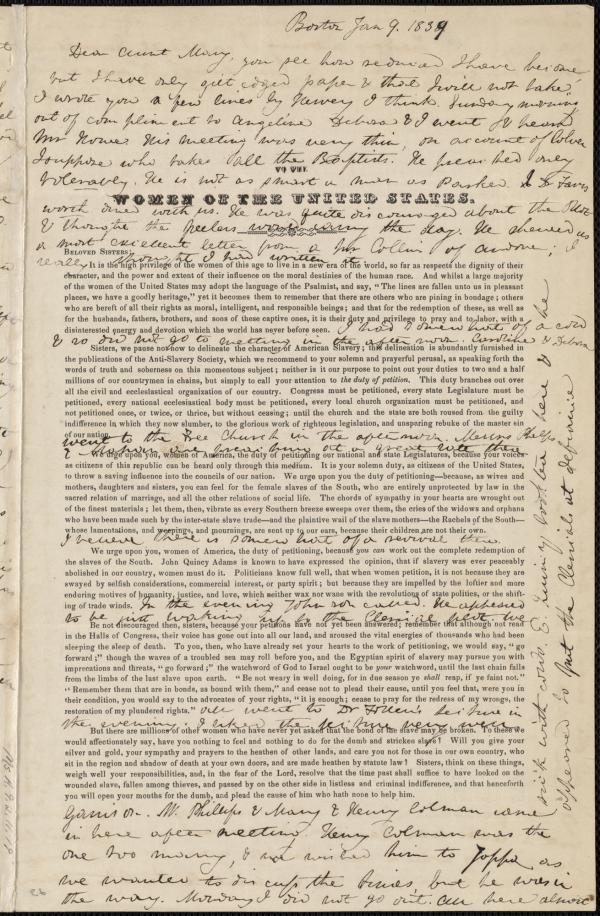 Boston Jan 9. 1839
Dear Aunt Mary, you see how reduced I have become
but I have only gilt edged paper & that I will not take.
I wrote you a few lines by Harvey I think. Sunday morning
out of compliment to Angelina Debora & I went to hear
Mr Howe. His meeting was very thin, on account of
I suppose who takes all the Baptists. He preached only
TO THE
tolerably. He is not as smart a man as Parker.
WOMEN OF THE UNITED STATES.
dined with us. He was quite discouraged about the
& thought the the day. He shewed us
BELOVED SISTERS:
a most excellent letter from a Mr Collins of Andover; I
really I had written it
It is the high privilege of the women of this age to live in a new era of the world, so far as respects the dignity of their
character, and the power and extent of their influence on the moral destinies of the human race. And whilst a large majority
of the women of the United States may adopt the language of the Psalmist, and say, "The lines are fallen unto us in pleasant
places, we have a goodly heritage," yet it becomes them to remember that there are others who are pining in bondage; others
who are bereft of all their rights as moral, intelligent, and responsible beings; and that for the redemption of these, as well as
for the husbands, fathers, brothers, and sons of these captive ones, it is their duty and privilege to pray and to labor, with a
disinterested energy and devotion which the world has never before seen. I had somewhat of a cold
& so did not go to meeting in the afternoon. Caroline & Debora
Sisters, we pause not now to delineate the character of American Slavery; this delineation is abundantly furnished in
the publications of the Anti-Slavery Society, which we recommend to your solemn and prayerful perusal, as speaking forth the
words of truth and soberness on this momentous subject; neither is it our purpose to point you your duties to two and a half
millions of our countrymen in chains, but simply to call your attention to the duty of petition. This duty branches out over
all the civil and ecclesiastical organization of our country. Congress must be petitioned, every state Legislature must be
petitioned, every national ecclesiastical body must be petitioned, every local church organization must be petitioned, and
not petitioned once, or twice, or thrice, but without ceasing; until the church and the state are both roused from the guilty
indifference in which they now slumber, to the glorious work of righteous legislation, and unsparing rebuke of the master sin
of our nation.
went to the Free Church in the afternoon. Messrs Phelps
& are preaching at a great rate there
We urge upon you, women of America, the duty of petitioning our national and state Legislatures, because your voices
as citizens of this republic can be heard only through this medium. It is your solemn duty, as citizens of the United States,
to throw a saving influence into the councils of our nation. We urge upon you the duty of petitioning—because, as wives and
mothers, daughters and sisters, you can feel for the female slaves of the South, who are entirely unprotected by law in the
sacred relation of marriage, and all the other relations of social life. The chords of sympathy in your hearts are wrought out
of the finest materials; let them, then, vibrate as every Southern breeze sweeps over them, the cries of the widows and orphans
who have been made such by the inter-state slave trade—and the plaintive wail of the slave mothers—the Rachels of the South—
whose lamentations, and weepings, and pournings, are sent up to our ears, because their children are not their own.
I believe there is somewhat of a revival there.
We urge upon you, women of America, the duty of petitioning, because you can work out the complete redemption of
the slaves of the South. John Quincy Adams is known to have expressed the opinion, that if slavery was ever peaceably
abolished in our country, women must do it. Politicians know full well, that when women petition, it is not because they are
swayed by selfish considerations, commercial interest, or party spirit; but because they are impelled by the loftier and more
enduring motives of humanity, justice, and love, which neither wax nor wane with the revolutions of state politics, or the shift-
ing of trade winds. In the evening Johnson called. He appeared
to be just waking up to the Clerical plot. We
Be not discouraged then, sisters, because your petitions have not yet been answered; remember that although not read
in the Halls of Congress, their voice has gone out into all our land, and aroused the vital energies of thousands who had been
sleeping the sleep of death. To you, then, who have already set your hearts to the work of petitioning, we would say, "go
forward;" though the waves of a troubled sea may roll before you, and the Egyptian spirit of slavery may pursue you with
imprecations and threats, "go forward;" the watchword of God to Israel ought to be your watchword, until the last chain falls
from the limbs of the last slave upon earth. "Be not weary in well doing, for in due season ye shall reap, if ye faint not."
"Remember them that are in bonds, as bound with them," and cease not to plead their cause, until you feel that, were you in
their condition, you would say to the advocates of your rights, "it is enough; cease to pray for the redress of my wrongs, the
restoration of my plundered rights." all went to Dr Follen's lecture in
the evening. I liked the lecture very well.
But there are millions of other women who have never yet asked that the bond of the slave may be broken. To these we
would affectionately say, have you nothing to feel and nothing to do for the dumb and stricken slave? Will you give your
silver and gold, your sympathy and prayers to the heathen of other lands, and care you not for those in our own country, who
sit in the region and shadow of death at your own doors, and are made heathen by statute law! Sisters, think on these things,
weigh well your responsibilities, and, in the fear of the Lord, resolve that the time past shall suffice to have looked on the
wounded slave, fallen among thieves, and passed by on the other side in listless and criminal indifference, and that henceforth
you will open your mouths for the dumb, and plead the cause of him who hath none to help him.
Garrison. W. Phillips & Mary & Henry Colman came
in here after meeting. Henry Colman was the
one too many, & we wished him to Joppa, as
we wanted to discuss the times, but he was in
the way. Monday I did not go out. all here almost
sick with colds. E. Quincy took tea here & he
appeared to put the Clericals at defiance